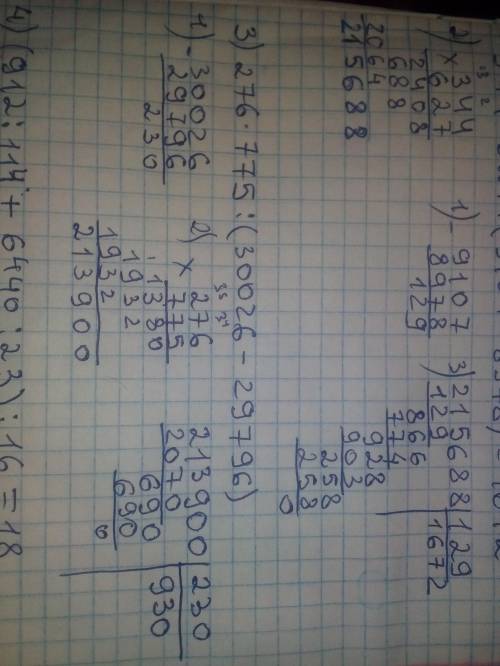 2) × 344
627
2408
688
2064
215688
1) - 9107
8978
129
3) 215688 | 129
129 | 1672
866
774
928
903
258
258
0
3) 276 · 775 : (30026 - 29796)
1) - 30026
29796
230
2) × 276
775
1380
1932
1932
213900
213900 | 230
2070 | 930
690
690
0
4) (912 : 114 + 6440 : 23) : 16 = 18